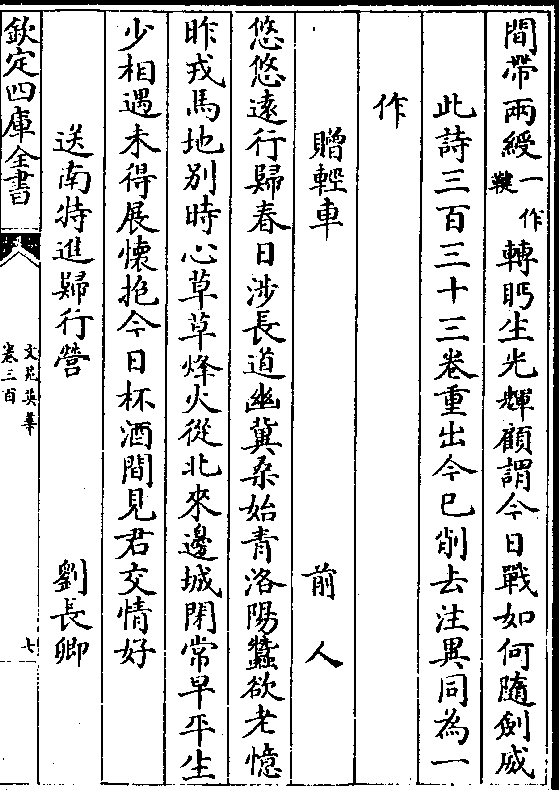 間帶兩綬一作鞬轉眄生光輝顧謂今日戰如何隨劍戚
此詩三百三十三卷重出今已削去注異同為一
作
贈輕車　前人
悠悠遠行歸春日涉長道幽冀桑始青洛陽蠶欲老憶
昨戎馬地別時心草草烽火從北來邊城閉常早平生
少相遇未得展懷抱今日杯酒間見君交情好
送南特進歸行營　劉長卿
欽定四庫全書
文苑英華
卷三百
七